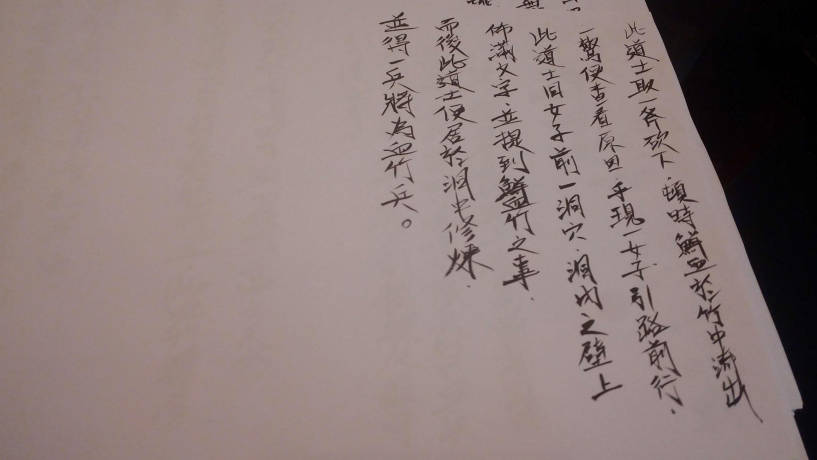 此道士取一斧砍下,頓時鮮血於竹中流出
一驚便查看原因,乎現一女子引路前行,
此道士同女子前一洞穴,洞内之壁上
佈滿文字,並提到鮮血竹之事,
而後此道士便居於洞中修煉,
並得一兵將為血竹兵。